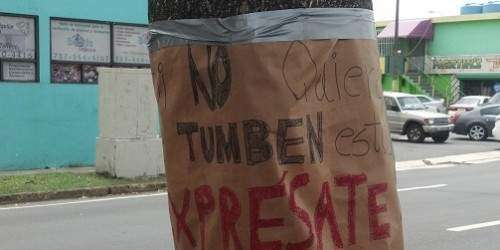 ¡ NO Quier
TUMBEN est
XPRÉSATE